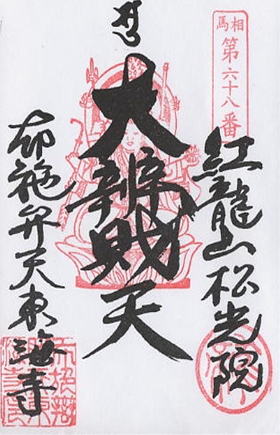 相馬
第六十八番
紅龍山松光院
大辨財天
布施弁天東海寺